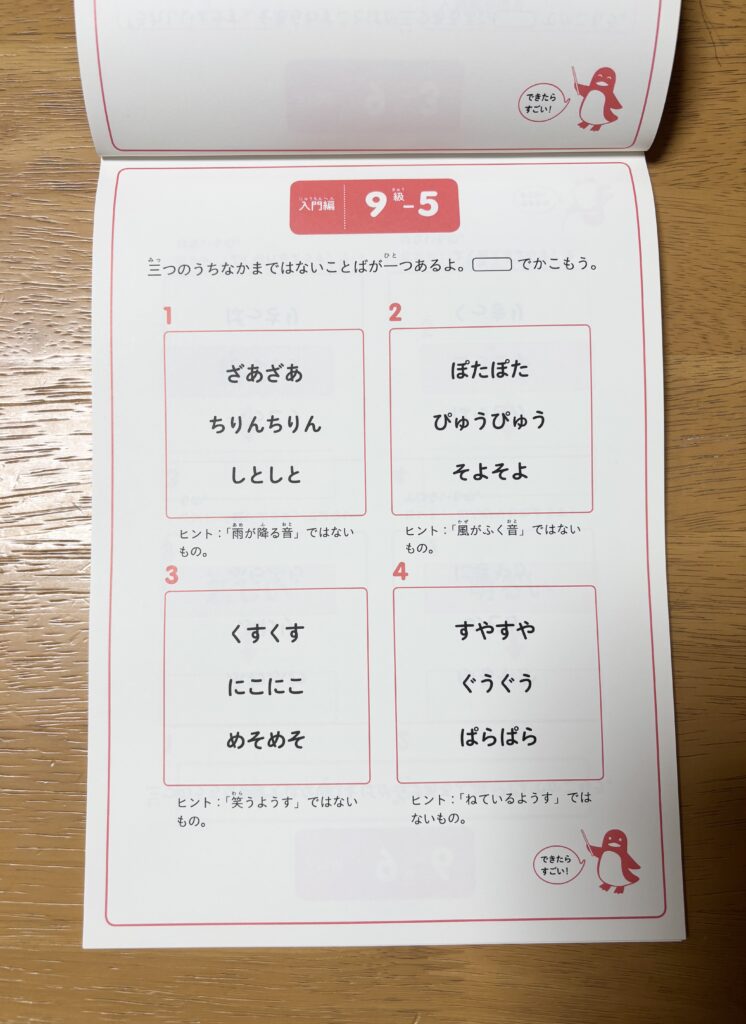 できたら
すごい！
入門編 9級-5
にゅうもんへん きゅう
みっ ひと
三つのうちなかまではないことばが一つあるよ。 でかこもう。
1
ざあざあ
ちりんちりん
しとしと
あめ ふ おと
ヒント：「雨が降る音」ではない
もの。
2
ぽたぽた
ぴゅうぴゅう
そよそよ
かぜ おと
ヒント：「風がふく音」ではない
もの。
3
くすくす
にこにこ
めそめそ
わら
ヒント：「笑うようす」ではない
もの。
4
すやすや
ぐうぐう
ぱらぱら
ヒント：「ねているようす」では
ないもの。
できたら
すごい！